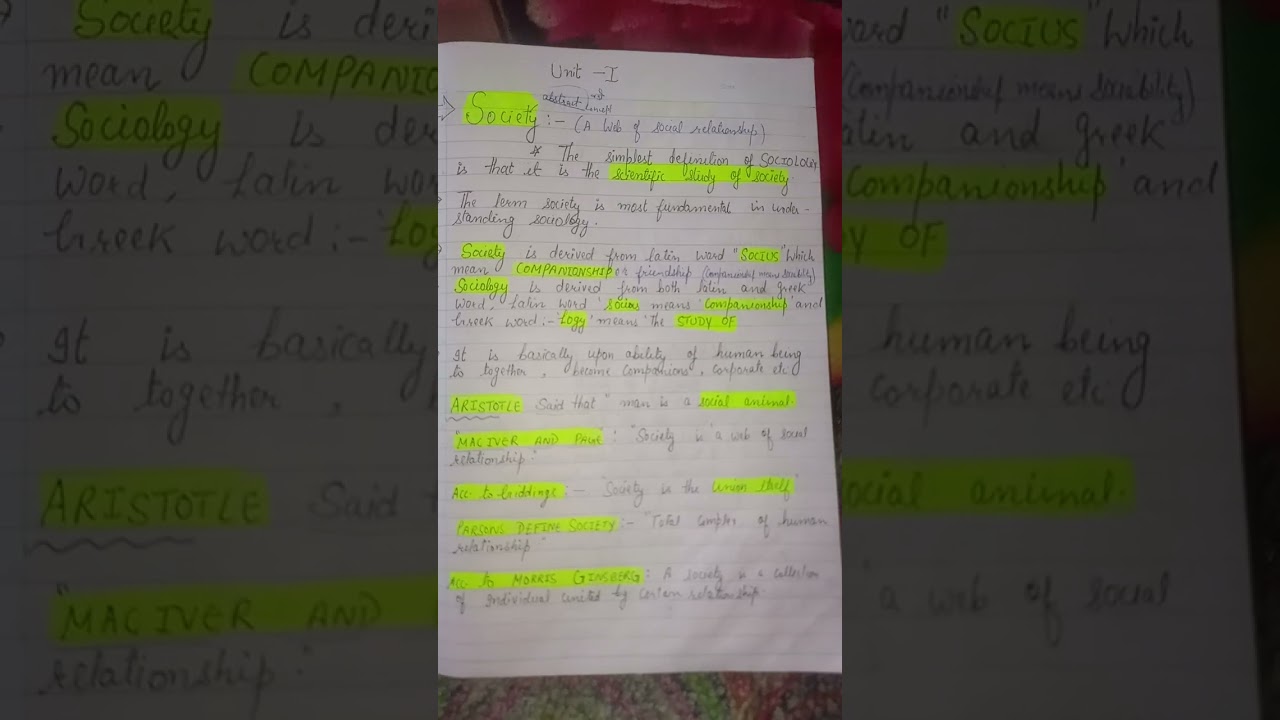 Unit - I
abstract
Society :- (A web of social relationship)
* The simplest definition of SOCIOLOGY
is that it is the scientific study of society.
The term society is most fundamental in under-
standing sociology.
Society is derived from latin word "SOCIUS" Which
mean COMPANIONSHIP or friendship (companionship means sociability)
Sociology is derived from both latin and greek
word, Latin word 'socius means 'Companionship and
Greek word :- 'Logy' means 'the STUDY OF
It is basically upon ability of human being
to together, become companions, corporate etc
ARISTOTLE Said that "man is a social animal.
"MACIVER AND PAGE" : "Society is a web of social
relationship."
Acc. to Giddings :- "Society is the Union itself"
PARSONS DEFINE SOCIETY :- "Total complex of human
relationship"
Acc. to MORRIS GINSBERG : A society is a collection
of individual united by certain relationship.